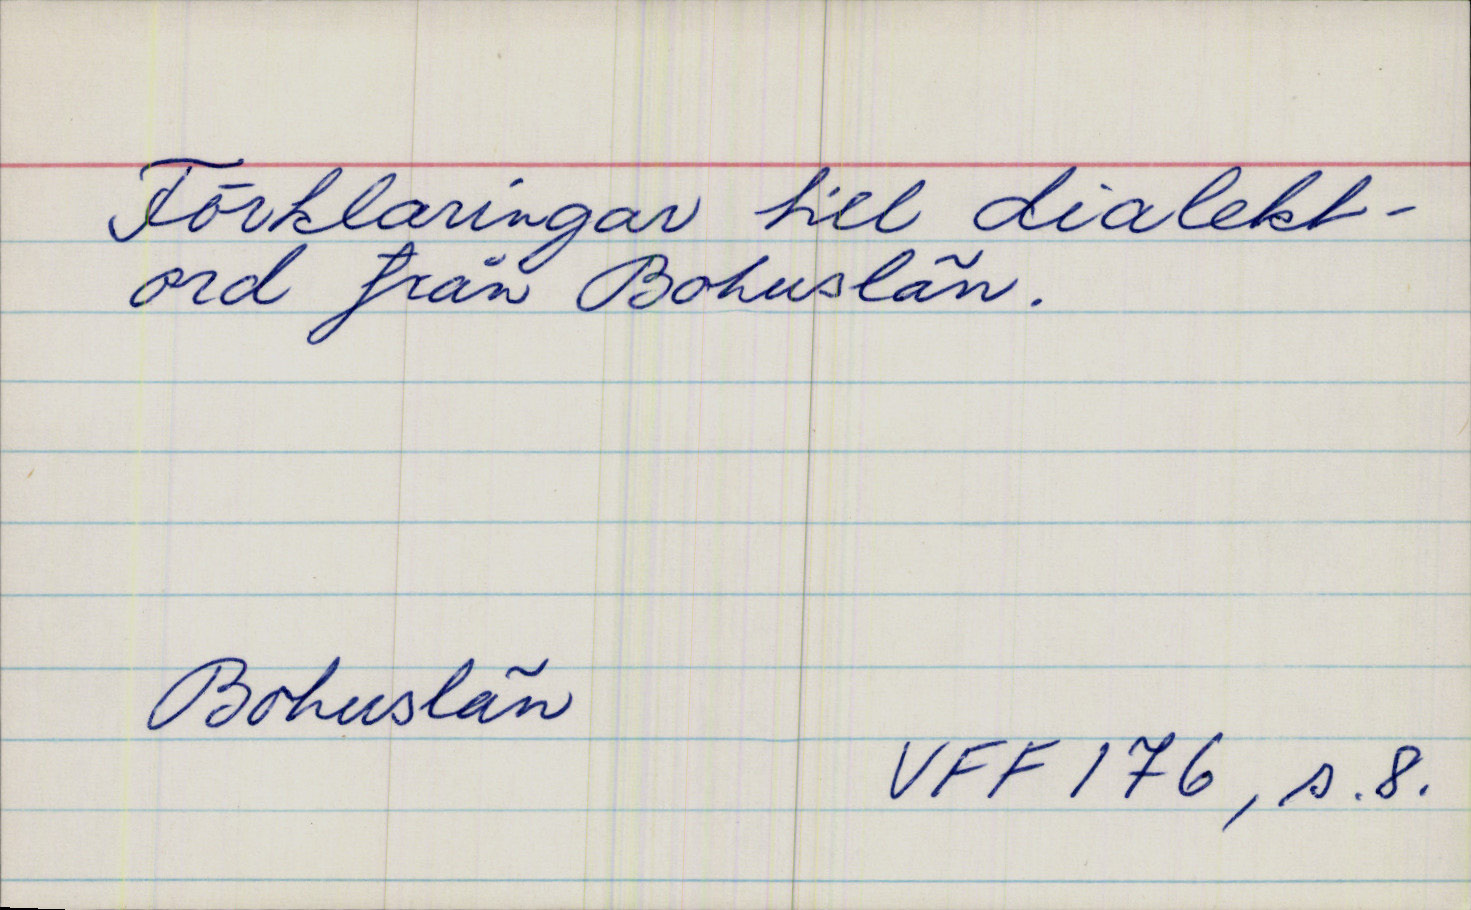 Förklaringar till dialekt-
ord från Bohuslän.
Bohuslän
VFF 176, s. 8.